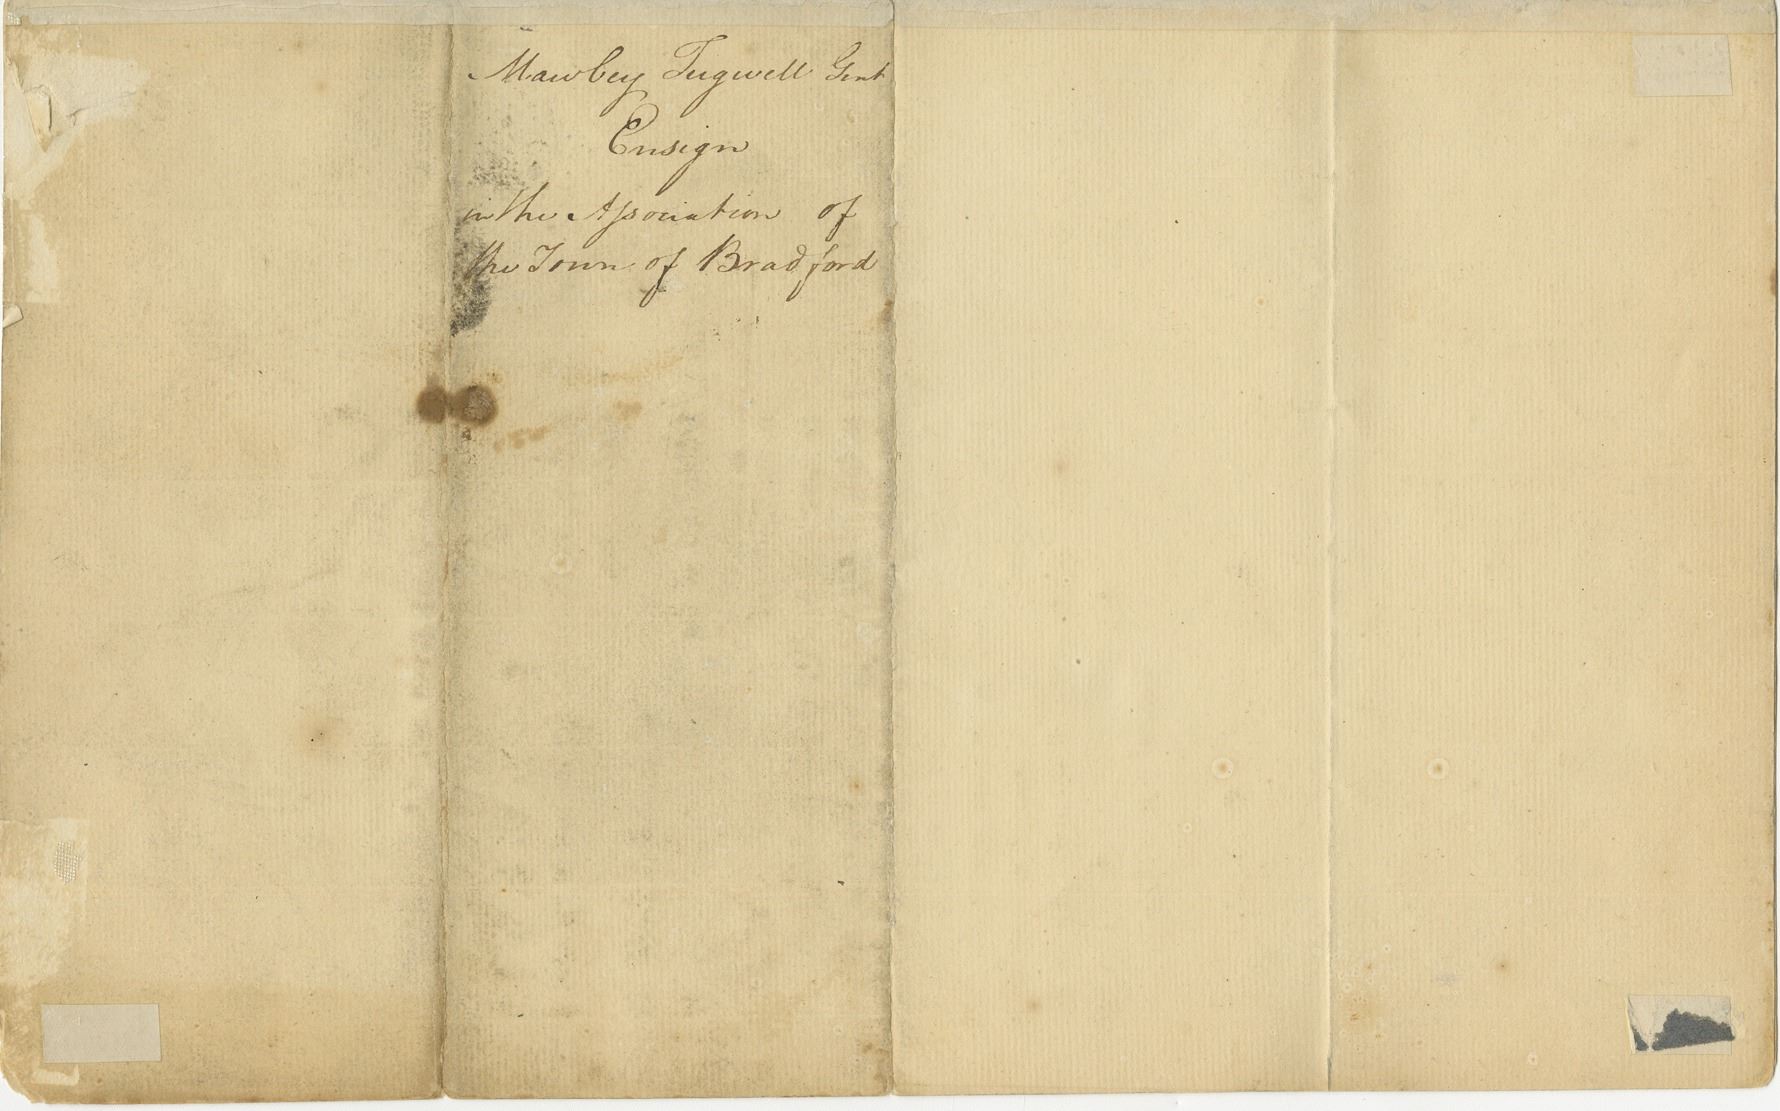 Mawbey Tugwell Gent
Ensign
in the Association of
the Town of Bradford